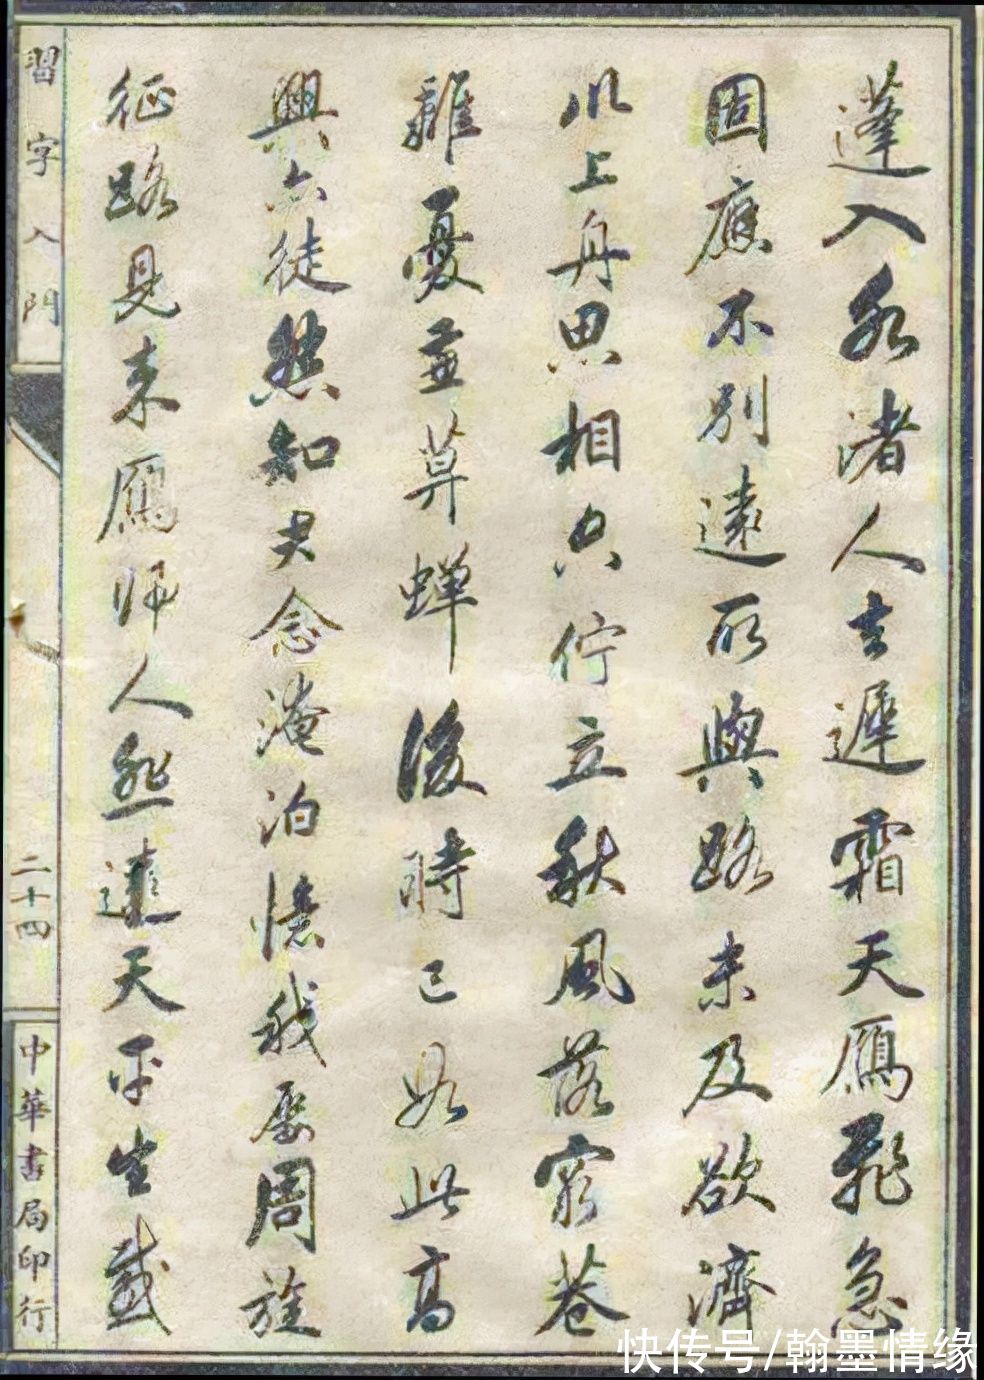 蓬入永渚人去遲霜天鴈飛急
固應不別遠所與路未及欲濟
川上舟思相空佇立秋風落窮巷
離憂兼暮蟬後時已如此高
興亦徒然知君念淹泊憶我屢周旋
征路見來鴈歸人悲遠天平生感
習字入門
二十四
中華書局印行
快传号/翰墨情缘